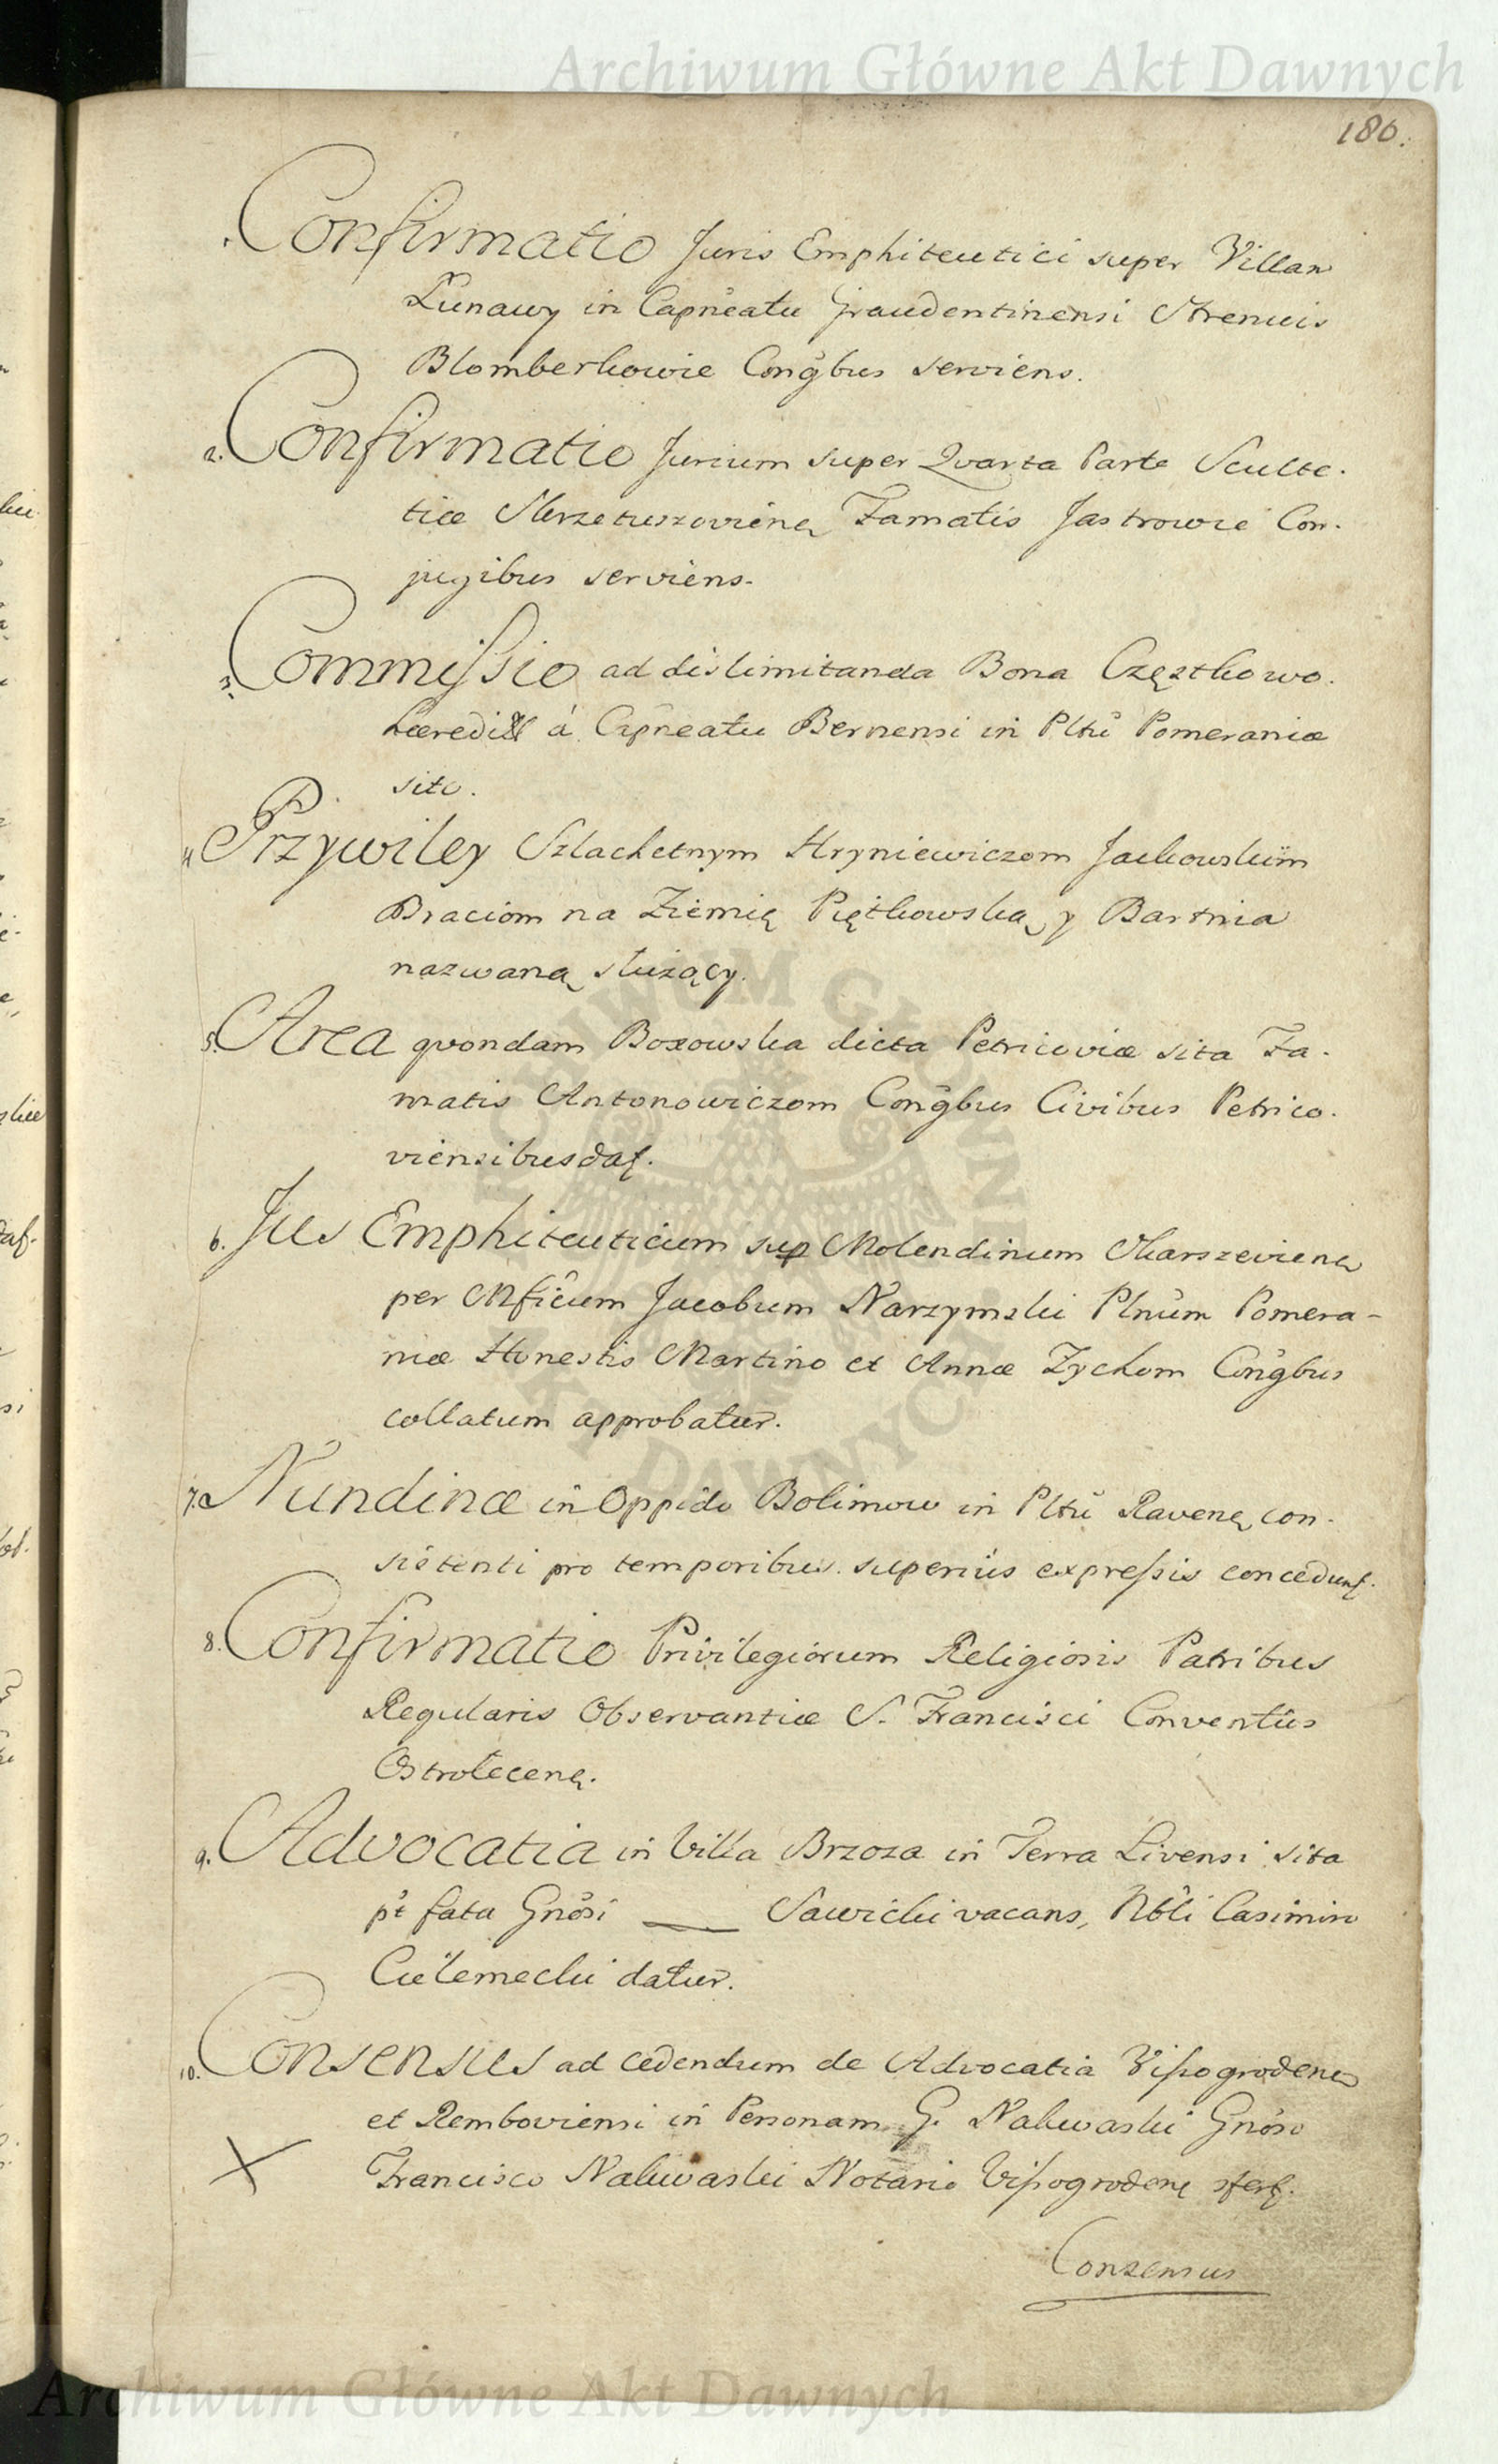 Archiwum Główne Akt Dawnych
186.
1. Confirmatio Juris Emphiteutici super Villam
Lunawy in Capñeatu Graudentinensi Strenuis
Blomberkowie Cong̃bus serviens.
2. Confirmatio Jurium super Quarta Parte Sculte-
tiæ Mrzetuszovieñ Famatis Jastrowie Con-
jugibus serviens.
3. Commissio ad dislimitanda Bona Częstkowo
hæredit à Capñeatu Bernensi in Pltũ Pomeraniæ
sito.
4. Przywiley Szlachetnym Hryniewiczom Jackowskim
Braciom na Ziemię Piętkowską y Bartnia
nazwaną służący.
5. Area qvondam Boxowska dicta Petricoviæ sita Fa-
matis Antonowiczom Cong̃bus Civibus Petrico-
viensibus daʈ.
6. Jus Emphiteuticum sup Molendinum Skarszevieñ
per Mficum Jacobum Narzymski Plnũm Pomera-
niæ Honestis Martino et Annæ Zychom Cong̃bus
collatum approbatur.
7. Nundinæ in Oppido Bolimow in Pltũ Raveñ con-
sistenti pro temporibus superius expressis concedunʈ.
8. Confirmatio Privilegiorum Religiosis Patribus
Regularis Observantiæ S. Francisci Conventûs
Ostroleceñ.
9. Advocatia in Villa Brzoza in Terra Livensi sita
pt fata Gnõsi ___ Sawicki vacans, Nbli Casimiro
datur.
10. Consensus ad cedendum de Advocatia Vissogrodeñ
et Remboviensi in Personam G. Nakwaski Gnõso
Francisco Nakwaski Notario Vissogrodeñ sferʈ.
Consensus
ARCHIWUM GŁÓWNE
AKT DAWNYCH
Archiwum Główne Akt Dawnych